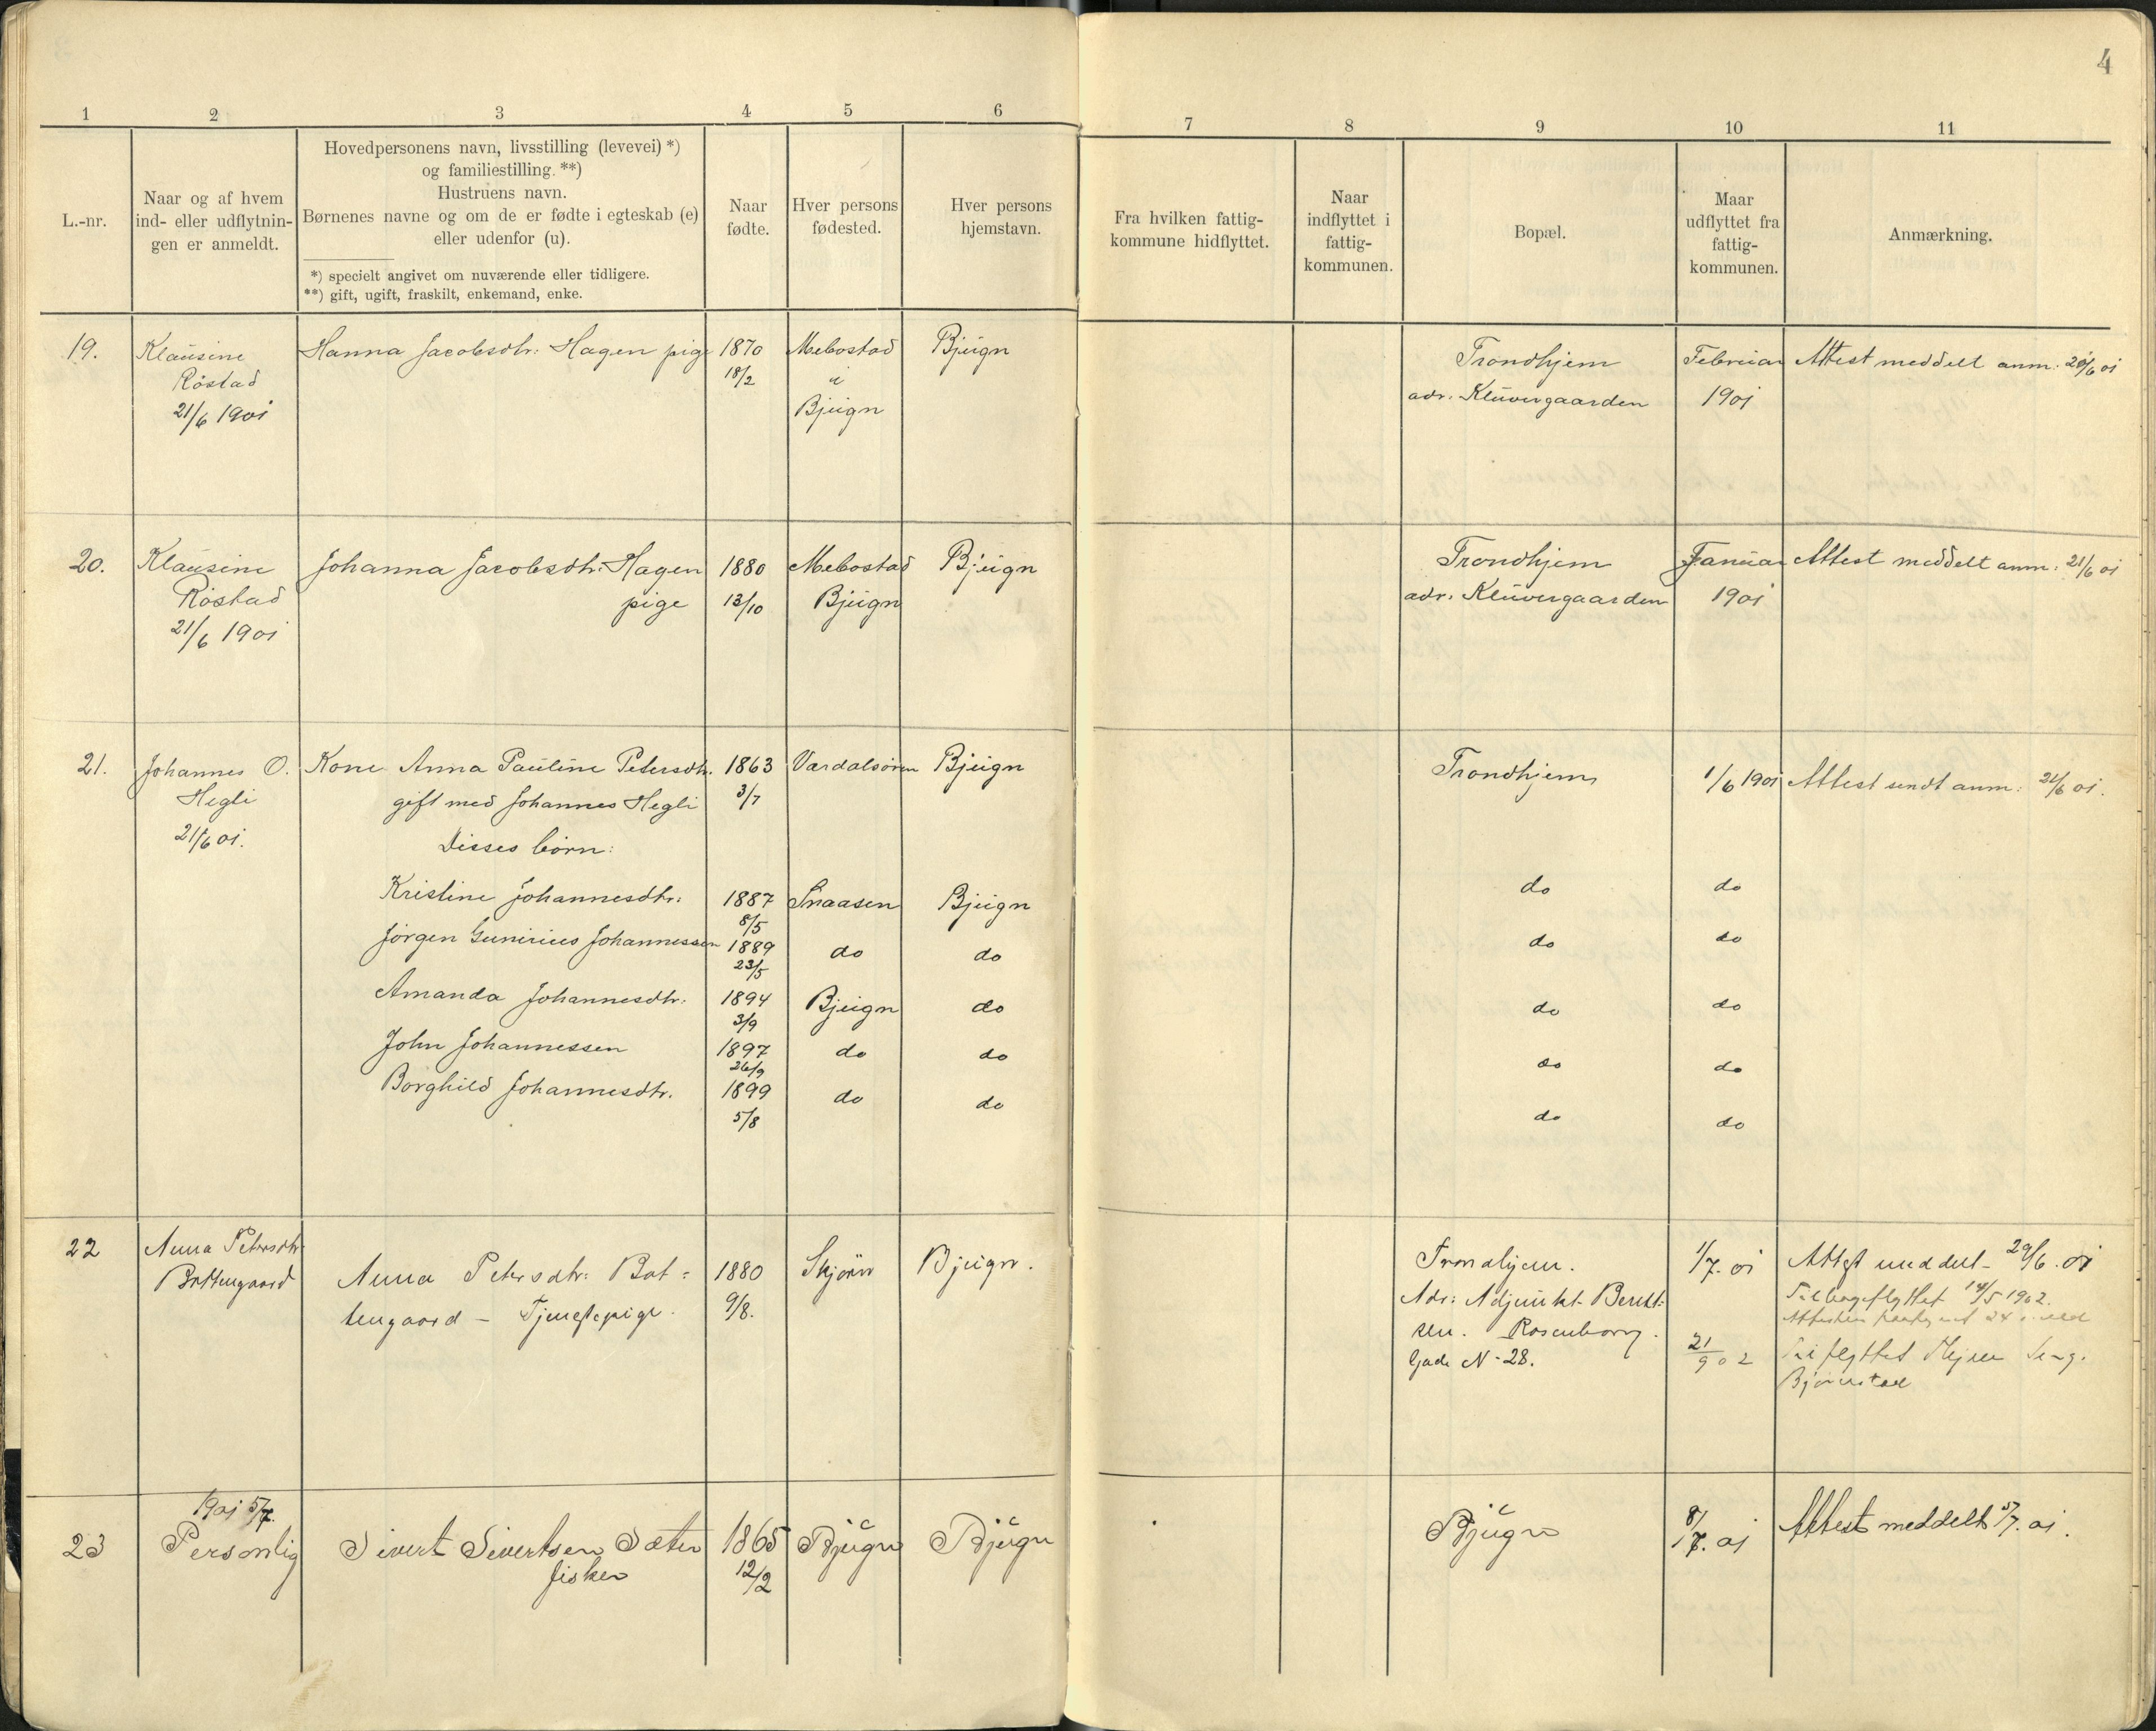 4
1 2 3 4 5 6 7 8 9 10 11
L.-nr.
Naar og af hvem
ind- eller udflytnin-
gen er anmeldt.
Hovedpersonens navn, livsstilling (levevei) *)
og familiestilling. **)
Hustruens navn.
Børnenes navne og om de er fødte i egteskab (e)
eller udenfor (u).
*) specielt angivet om nuværende eller tidligere.
**) gift, ugift, fraskilt, enkemand, enke.
Naar
fødte.
Hver persons
fødested.
Hver persons
hjemstavn.
Fra hvilken fattig-
kommune hidflyttet.
Naar
indflyttet i
fattig-
kommunen.
Bopæl.
Maar
udflyttet fra
fattig-
kommunen.
Anmærkning.
19. Klausine Hanna Jacobsdtr: Hagen pige 1870 Mebostad Bjugn Trondhjem Februar Attest meddelt anm: 20/6 01
Røstad 18/2 i adr. Klüwergaarden 1901
21/6 1901 Bjugn
20. Klausine Johanna Jacobsdtr: Hagen 1880 Mebostad Bjugn Trondhjem Januar Attest meddelt anm: 21/6 01
Røstad pige 13/10 Bjugn adr. Klüwergaarden 1901
21/6 1901
21. Johannes O. Kone Anna Pauline Petersdtr. 1863 Værdalsøren Bjugn Trondhjem 1/6 1901 Attest sendt anm: 21/6 01.
Hegli gift med Johannes Hegli 3/7
21/6 01. Disses børn:
Kristine Johannesdtr: 1887 Snaasen Bjugn do do
8/5
Jörgen Johannessen 1889 do do do do
23/5
Amanda Johannesdtr. 1894 Bjugn do do do
3/9
John Johannessen 1897 do do do do
26/9
Borghild Johannesdtr. 1899 do do do do
5/8
22 Anna Petersdtr: Anna Petersdtr: Bot= 1880 Skjörn Bjugn. Trondhjem. 1/7. 01 Attest meddelt 29/6. 01
Bottengaard tengaard – Tjenestepige. 9/8. Adr: Adjunkt Berent= Tilbageflyttet 14/5 1902.
sen. Rosenborg.
Gade N- 28. 21/9 02
1901 5/7.
23 Personlig Sivert Sivertsen Sæter 1865 Bjugn Bjugn Bjugn 8/ 17. 01 Attest meddelt 5/7. 01.
fisker 12/2